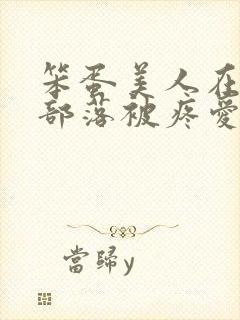 笨蛋美人在
部落被疼愛
當歸y